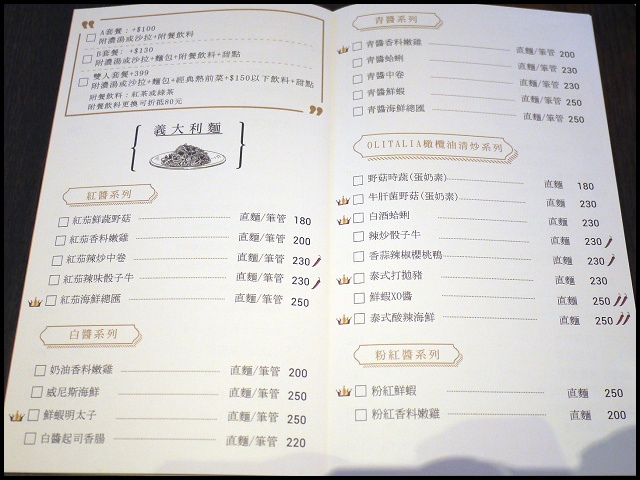 A套餐：+$100
附濃湯或沙拉+附餐飲料
B套餐：+$130
附濃湯或沙拉+麵包+附餐飲料+甜點
雙人套餐+399
附濃湯或沙拉+麵包+經典熱前菜+$150以下飲料+甜點
附餐飲料：紅茶或綠茶
附餐飲料更換可折低80元
義大利麵
紅醬系列
紅茄鮮蔬野菇 直麵/筆管 180
紅茄香料嫩雞 直麵/筆管 200
紅茄辣炒中卷 直麵/筆管 230
紅茄辣味骰子牛 直麵/筆管 230
紅茄海鮮總匯 直麵/筆管 250
白醬系列
奶油香料嫩雞 直麵/筆管 200
威尼斯海鮮 直麵/筆管 250
鮮蝦明太子 直麵/筆管 250
白醬起司香腸 直麵/筆管 220
青醬系列
青醬香料嫩雞 直麵/筆管 200
青醬蛤蜊 直麵/筆管 230
青醬中卷 直麵/筆管 230
青醬鮮蝦 直麵/筆管 250
青醬海鮮總匯 直麵/筆管 250
OLITALIA橄欖油清炒系列
野菇時蔬(蛋奶素) 直麵 180
牛肝菌野菇(蛋奶素) 直麵 230
白酒蛤蜊 直麵 230
辣炒骰子牛 直麵 230
香蒜辣椒櫻桃鴨 直麵 230
泰式打拋豬 直麵 230
鮮蝦XO醬 直麵 250
泰式酸辣海鮮 直麵 250
粉紅醬系列
粉紅鮮蝦 直麵 250
粉紅香料嫩雞 直麵 200